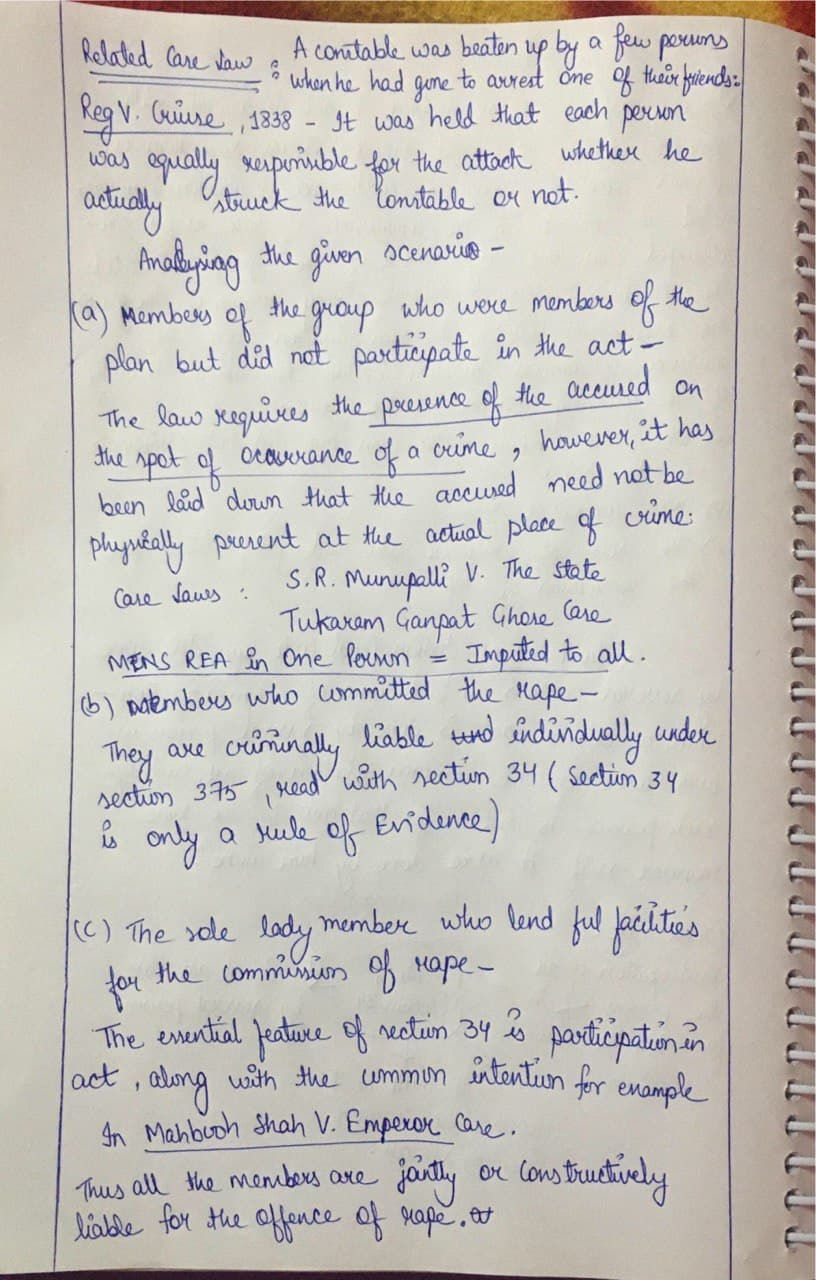 Related Case Law : A constable was beaten up by a few persons
when he had gone to arrest one of their friends:
Reg V. Cruise, 1838 - It was held that each person
was equally responsible for the attack whether he
actually struck the constable or not.
Analysing the given scenario -
(a) Members of the group who were members of the
plan but did not participate in the act -
The law requires the presence of the accused on
the spot of occurrance of a crime, however, it has
been laid down that the accused need not be
physically present at the actual place of crime:
Case Laws : S.R. Munupalli V. The State
Tukaram Ganpat Ghose Case
MENS REA in One Person = Imputed to all.
(b) Members who committed the rape -
They are criminally liable and individually under
section 375, read with section 34 ( Section 34
is only a rule of Evidence)
(c) The sole lady member who lend ful facilities
for the commission of rape -
The essential feature of section 34 is participation in
act, along with the common intention for example
In Mahbooh Shah V. Emperor Case.
Thus all the members are jointly or Constructively
liable for the offence of rape.